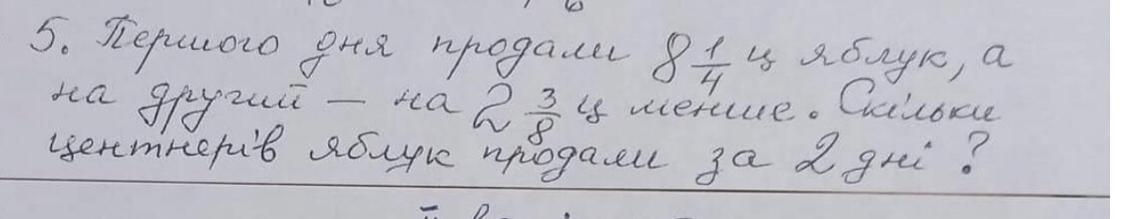 5. Першого дня продали 8 1/4 ц яблук, а
на другий – на 2 3/8 ц менше. Скільки
центнерів яблук продали за 2 дні?